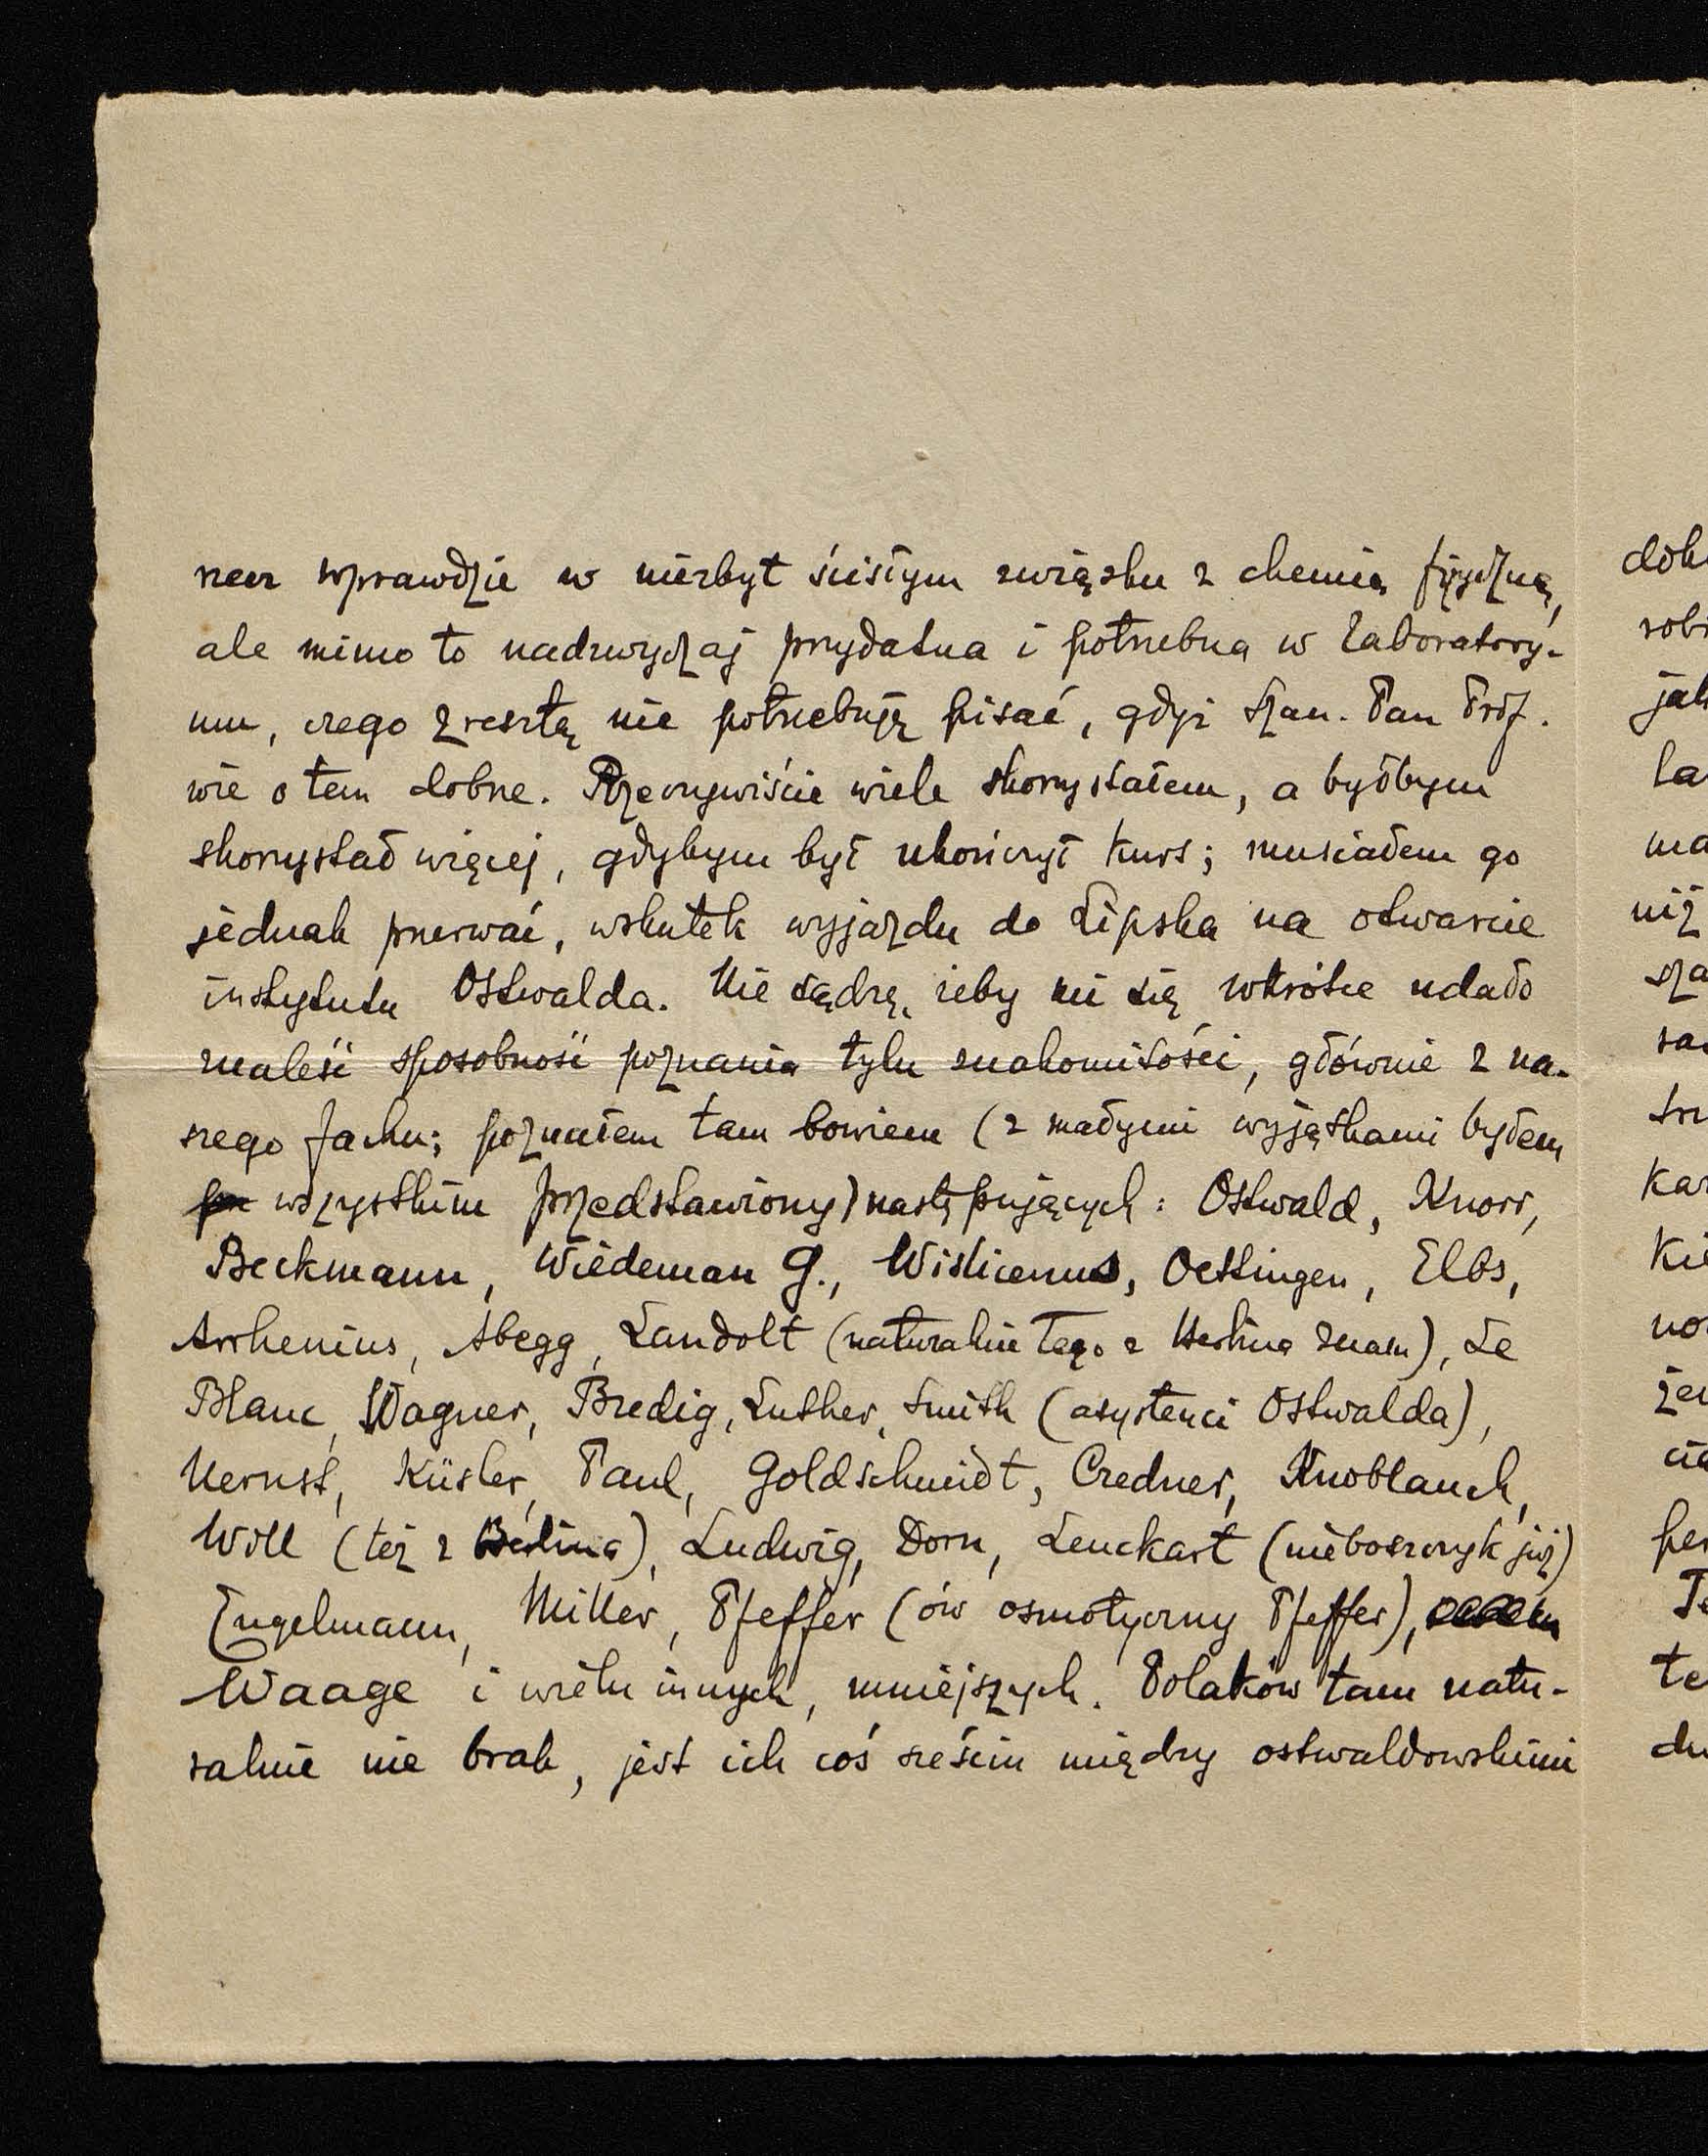 rzecz wprawdzie w niezbyt ścisłym związku z chemią fizyczną,
ale mimo to nadzwyczaj przydatna i potrzebna w laboratory-
um, czego zresztą nie potrzebuję pisać, gdyż Szan. Pan Prof.
wie o tem dobrze. Rzeczywiście wiele skorzystałem, a byłbym
skorzystał więcej, gdybym był ukończył kurs; musiałem go
jednak przerwać, wskutek wyjazdu do Lipska na otwarcie
instytutu Ostwalda. Nie sądzę, żeby mi się wkrótce udało
znaleść sposobność poznania tylu znakomitości, głównie z na-
szego fachu; poznałem tam bowiem (z małymi wyjątkami byłem
wszystkim przedstawiony) następujących: Ostwald, Knorr,
Beckmann, Wiedeman G., Wislicenus, Oettingen, Elbs,
Arrhenius, Abegg, Landolt (naturalnie tego z Berlina znam), Le
Blanc, Wagner, Bredig, Luther, Smith (asystenci Ostwalda),
Nernst, Küster, Paul, Goldschmidt, Credner, Knoblauch,
Will (też z Berlina), Ludwig, Dorn, Leuckart (nieboszczyk już)
Engelmann, Miller, Pfeffer (ów osmotyczny Pfeffer),
Waage i wielu innych, mniejszych. Polaków tam natu-
ralnie nie brak, jest ich coś sześciu między ostwaldowskimi